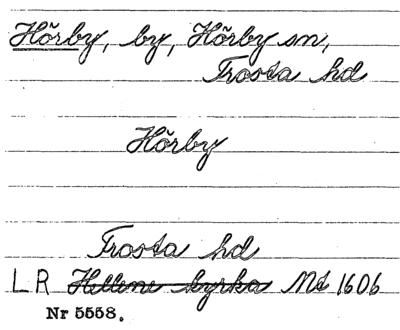 Hörby, by, Hörby sn,
Frosta hd
Hörby
Frosta hd
LR Hellene kyrka Ms 1606
Nr 5558.